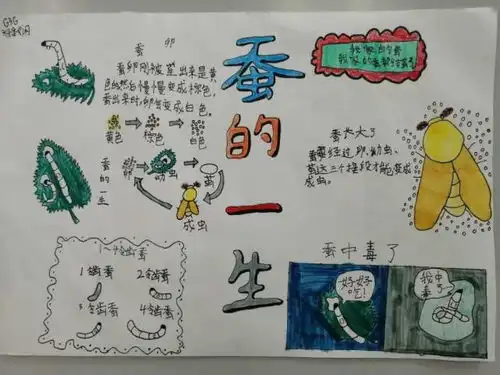 蚕 卵
蚕卵刚被产出来是黄
色的然后慢慢变成棕色,
蚕出来时,卵会变成白色。
黄色
棕色
白色
蚕的一生
卵
幼虫
茧
成虫
蚕的一生
1~4龄蚕
1龄蚕
2龄蚕
3龄蚕
4龄蚕
蚕长大了
蚕要经过卵、幼虫、
茧这三个阶段才能变成
成虫。
蚕中毒了
好好
吃!
我中
毒了